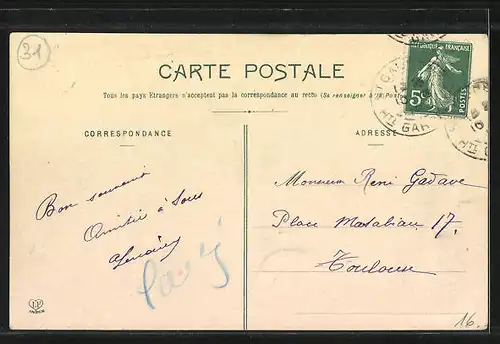 31
CARTE POSTALE
Tous les pays Etrangers n'acceptent pas la correspondance au recto (Se renseigner à la Poste)
RÉPUBLIQUE FRANÇAISE
5c
POSTES
HTE GAR
CORRESPONDANCE
ADRESSE
Bon souvenir
Amitiés à tous
Monsieur René Gadave
Place Matabiau 17.
Toulouse
16.